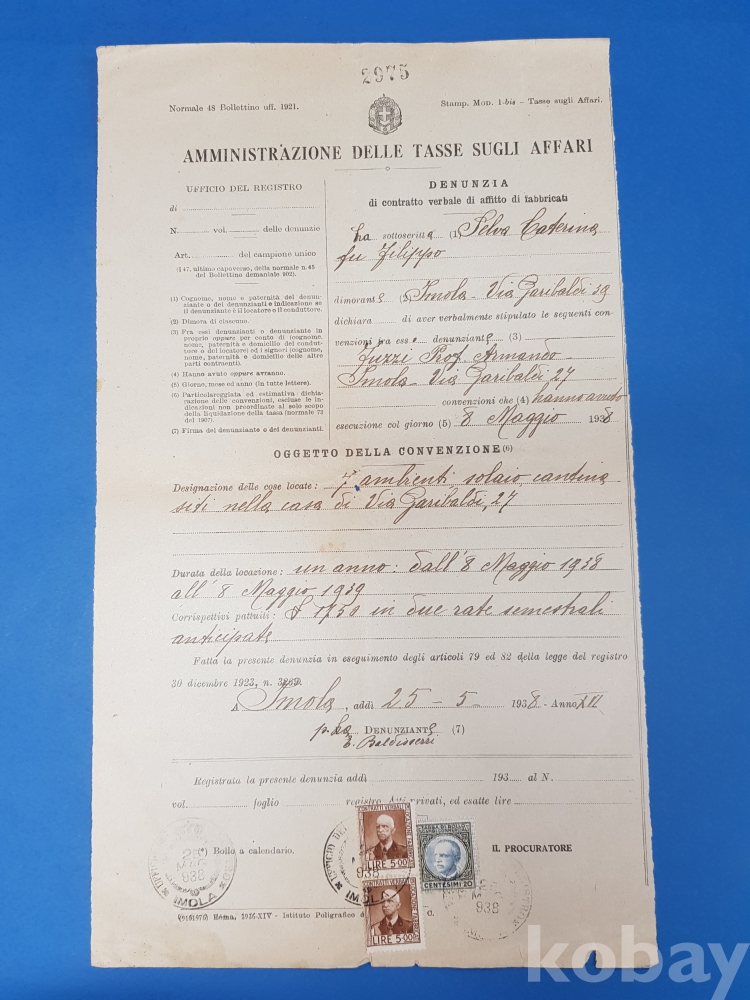 2975
Normale 48 Bollettino uff. 1921.
Stamp. Mod. 1-bis — Tasse sugli Affari.
AMMINISTRAZIONE DELLE TASSE SUGLI AFFARI
UFFICIO DEL REGISTRO
di
N. vol. delle denunzie
Art. del campione unico
(§ 47, ultimo capoverso, della normale n. 45
del Bollettino demaniale 902).
(1) Cognome, nome e paternità del denun-
ziante o dei denunzianti e indicazione se
il denunziante è il locatore o il conduttore.
(2) Dimora di ciascuno.
(3) Fra essi denunzianti o denunziante in
proprio oppure per conto di (cognome,
nome, paternità e domicilio del condutto-
re o del locatore) ed i signori (cognome,
nome, paternità e domicilio delle altre
parti contraenti).
(4) Hanno avuto oppure avranno.
(5) Giorno, mese ed anno (in tutte lettere).
(6) Particolareggiata ed estimativa dichia-
razione delle convenzioni, escluse le in-
dicazioni non preordinate al solo scopo
della liquidazione della tassa (normale 73
del 1907).
(7) Firma del denunziante o dei denunzianti.
DENUNZIA
di contratto verbale di affitto di fabbricati
La sottoscritta (1) Selva Caterina
fu Filippo
dimorante (2) Imola - Via Garibaldi 29
dichiara di aver verbalmente stipulato le seguenti con-
venzioni fra esse denunziante (3)
Prof. Armando
Imola - Via Garibaldi 27
convenzioni che (4) hanno avuto
esecuzione col giorno (5) 8 Maggio 1938
OGGETTO DELLA CONVENZIONE (6)
Designazione delle cose locate: 7 ambienti, solaio, cantina
siti nella casa di Via Garibaldi, 27
Durata della locazione: un anno: dall'8 Maggio 1938
all'8 Maggio 1939
Corrispettivi pattuiti: £ 1750 in due rate semestrali
anticipate
Fatta la presente denunzia in eseguimento degli articoli 79 ed 82 della legge del registro
30 dicembre 1923, n. 3269.
A Imola, addì 25 - 5 1938 - Anno XVI
p. La DENUNZIANTE (7)
E. Baldisserri
Registrata la presente denunzia addì 193 al N.
vol. foglio registro Atti privati, ed esatte lire
(*) Bollo a calendario.
IL PROCURATORE
IMOLA
MAG
938
UFFICIO DEL
938
IMOLA
CONTRATTI VERBALI
LIRE 5,00
CONTRATTI VERBALI
LIRE 5,00
TASSA DI BOLLO
CENTESIMI 20
938
Roma, 1936-XIV - Istituto Poligrafico d
kobay